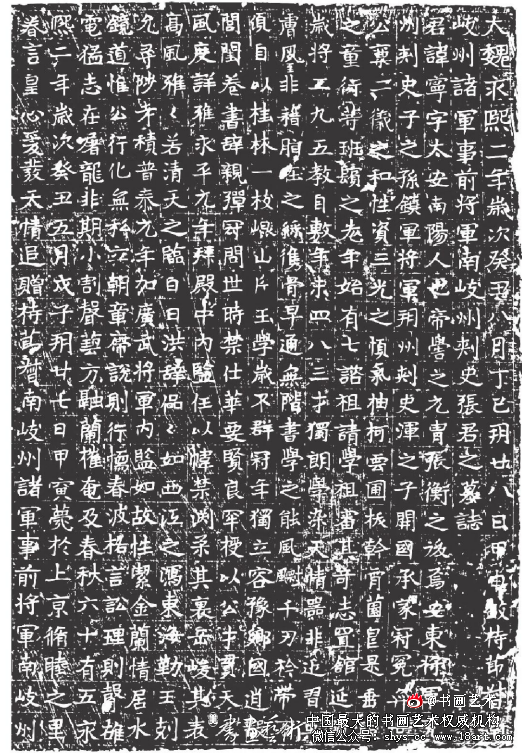 大魏永熙二年歲次癸丑八月丁巳朔廿八日甲申故持節督南
岐州諸軍事前將軍南岐州刺史張君之墓誌
君諱寧字太安南陽人也帝嚳之元冑張衡之後焉安東將
州刺史子之孫鎮軍將軍朔州刺史渾之子開國承家冠冕
公稟二儀之和性資三光之慎氣柚柯雲圃振幹育菌是垂
之童衛等班鬚之老年始有七諮祖請學祖奮其奇志置館延
歲將立九五教自數年未四八三才獨朗學染天情器非近習術
膚風非積胎在之雋骨早通無階書學之能風颺千刃衿帶
傾自以桂林一枝崐山片玉學歲不群冠年獨立容豫鄉國逍
閭閻卷書辭親彈冠問世時禁仕華要賢良罕授以公才貫天
風度詳雅永平元年拜殿中內監任以幃禁泂柔其裏岳峻其表
高風雅〻若清天之臨白日洪辭侃〻如西江之瀉東海勤王刻
允尋陟步積普泰元年加廣武將軍內監如故性潔金蘭情居水
鏡道惟公行化無私六朝童齊說則行德春波格言訟理則聲雄
電猛志在屠龍非期小割聲藝方融蘭摧奄及春秋六十有五永
熙二年歲次癸丑五月戊子朔廿七日甲寅薨於上京脩睦之里
眷言皇心爰發天情追贈持節督南岐州諸軍事前將軍南岐州
@书画艺术
中国最大的书画艺术权威机构
微信公众号: shys.cc www.18art.com